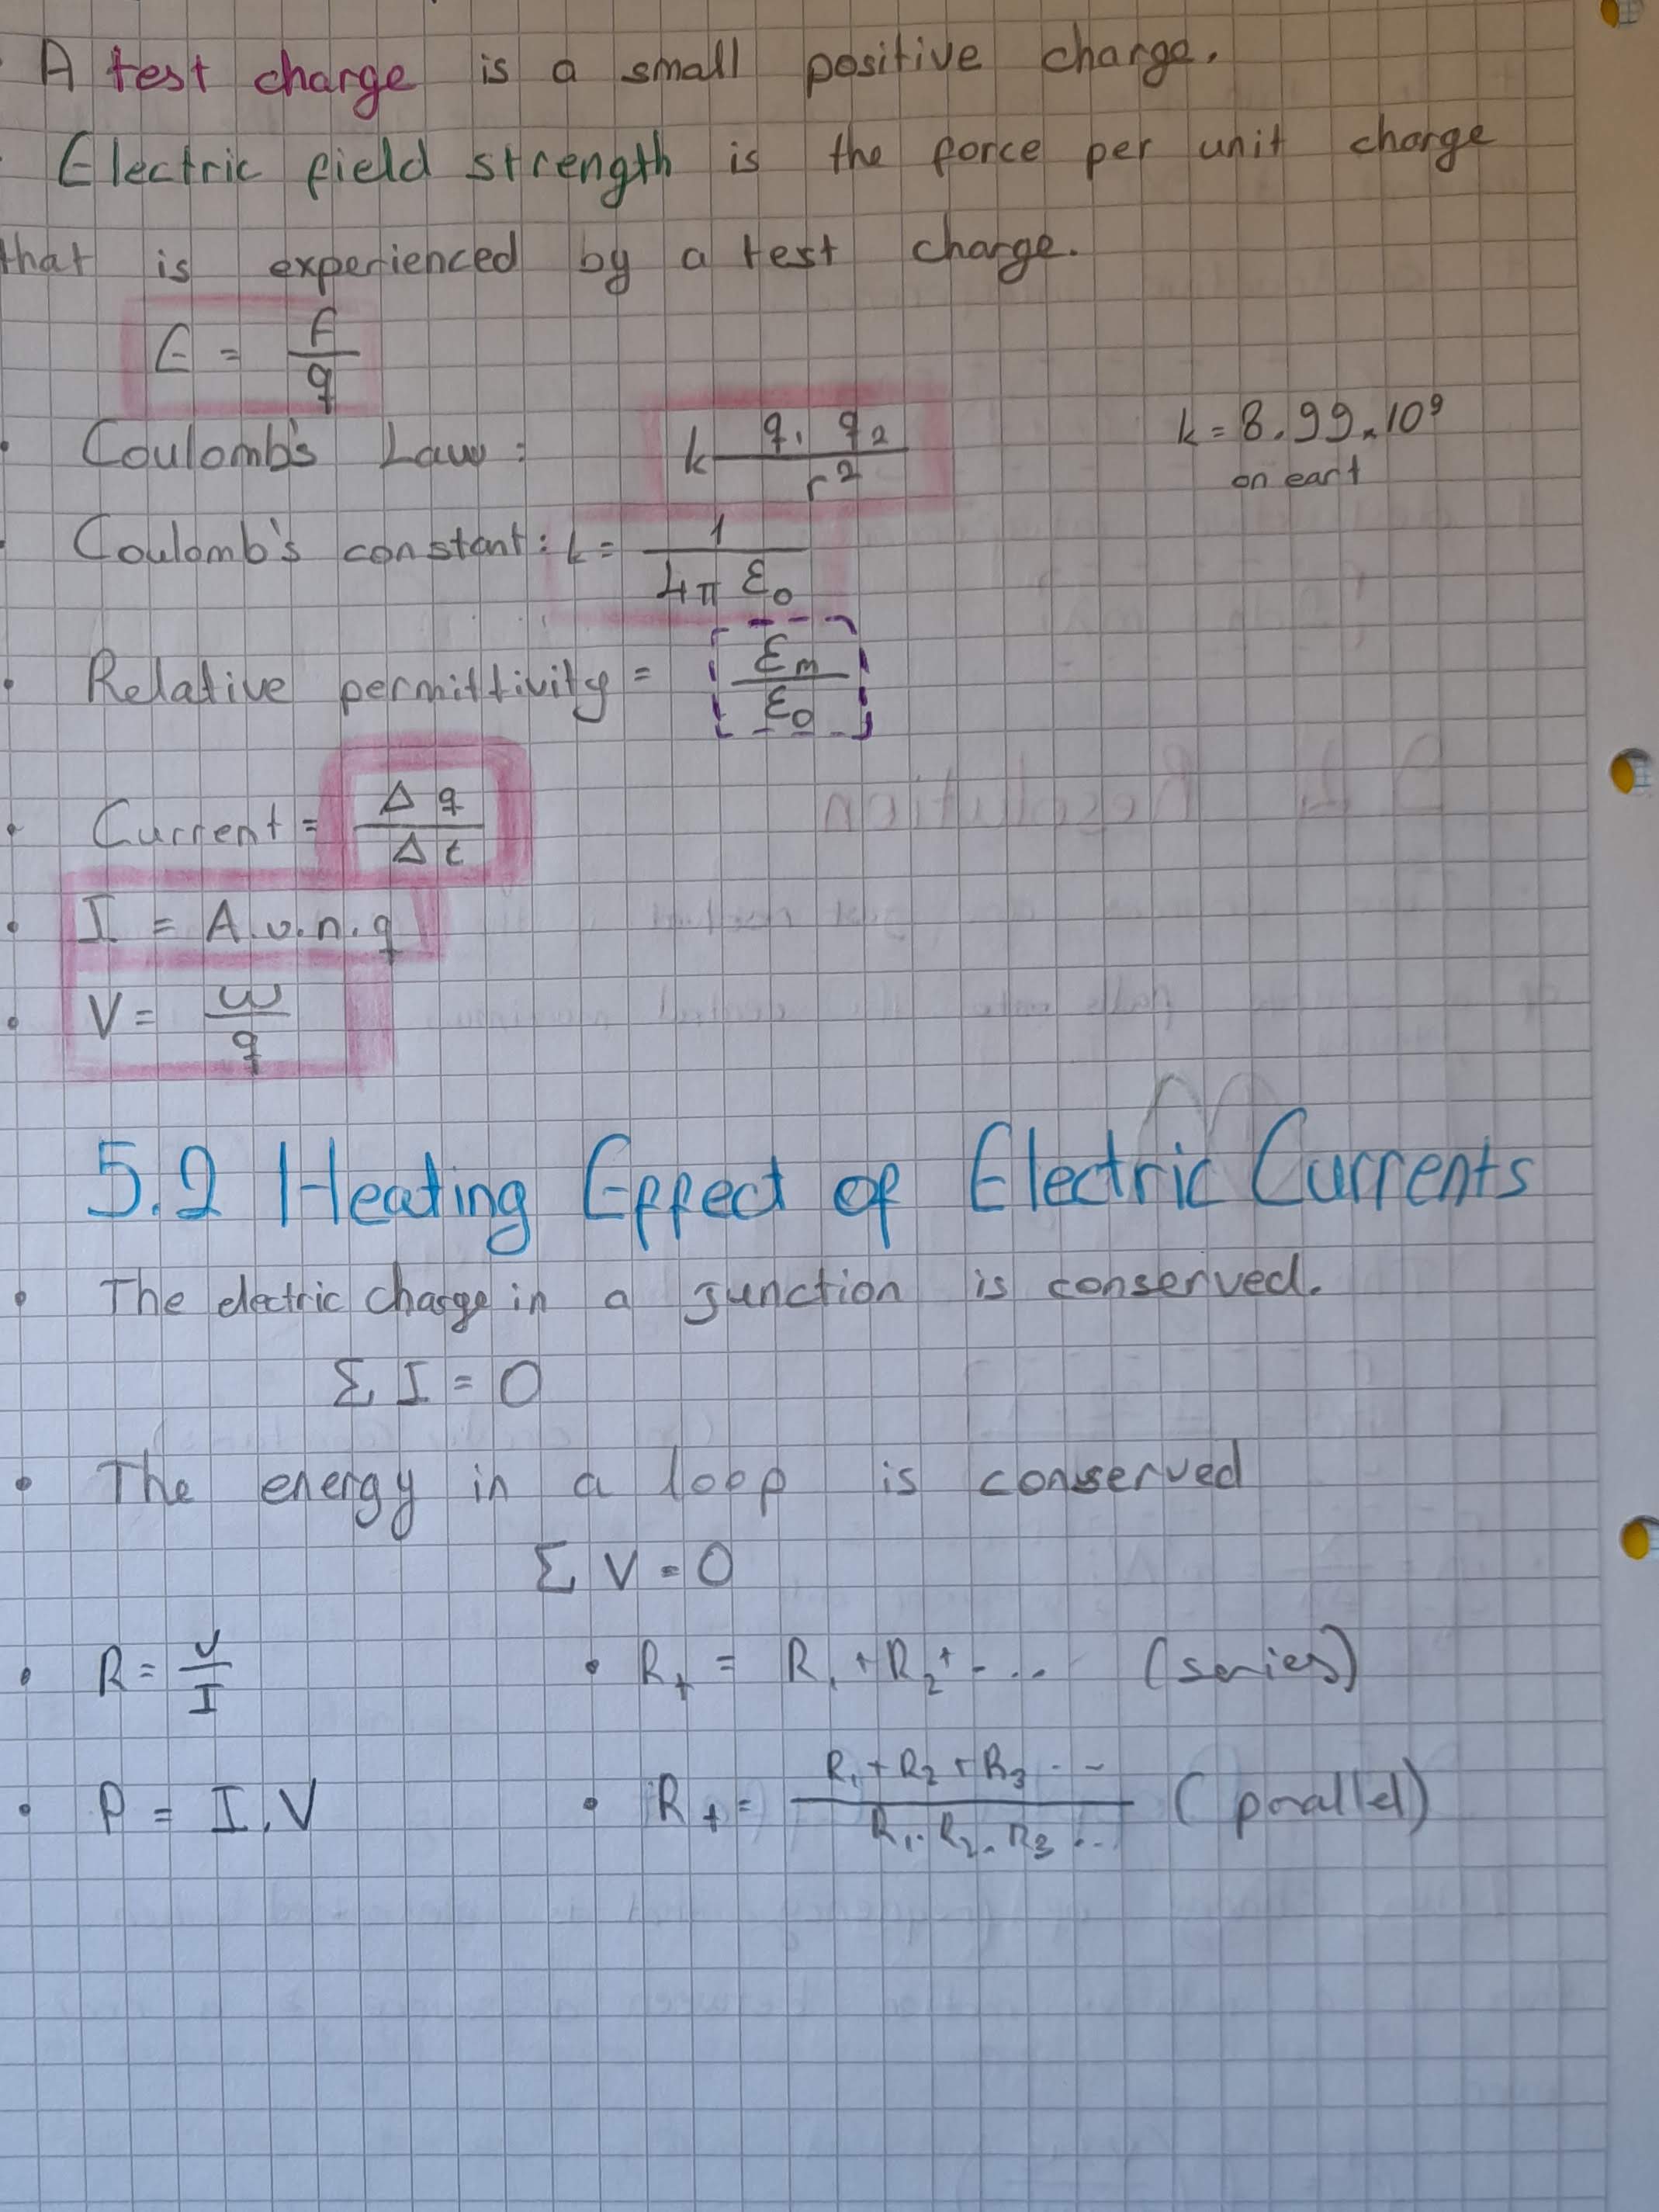 A test charge is a small positive charge.
Electric field strength is the force per unit charge
that is experienced by a test charge.
E = F/q
Coulomb's Law: k q₁ q₂ / r²
k = 8.99 × 10⁹
on eart
Coulomb's constant: k = 1 / 4π ε₀
Relative permittivity = εm / ε₀
Current = Δq / Δt
I = A.v.n.q
V = W / q
5.2 Heating Effect of Electric Currents
The electric charge in a junction is conserved.
Σ I = 0
The energy in a loop is conserved
Σ V = 0
R = V / I
Rt = R₁ + R₂ + ... (series)
P = I.V
Rt = R₁ + R₂ + R₃ ... / R₁.R₂.R₃ ... (parallel)